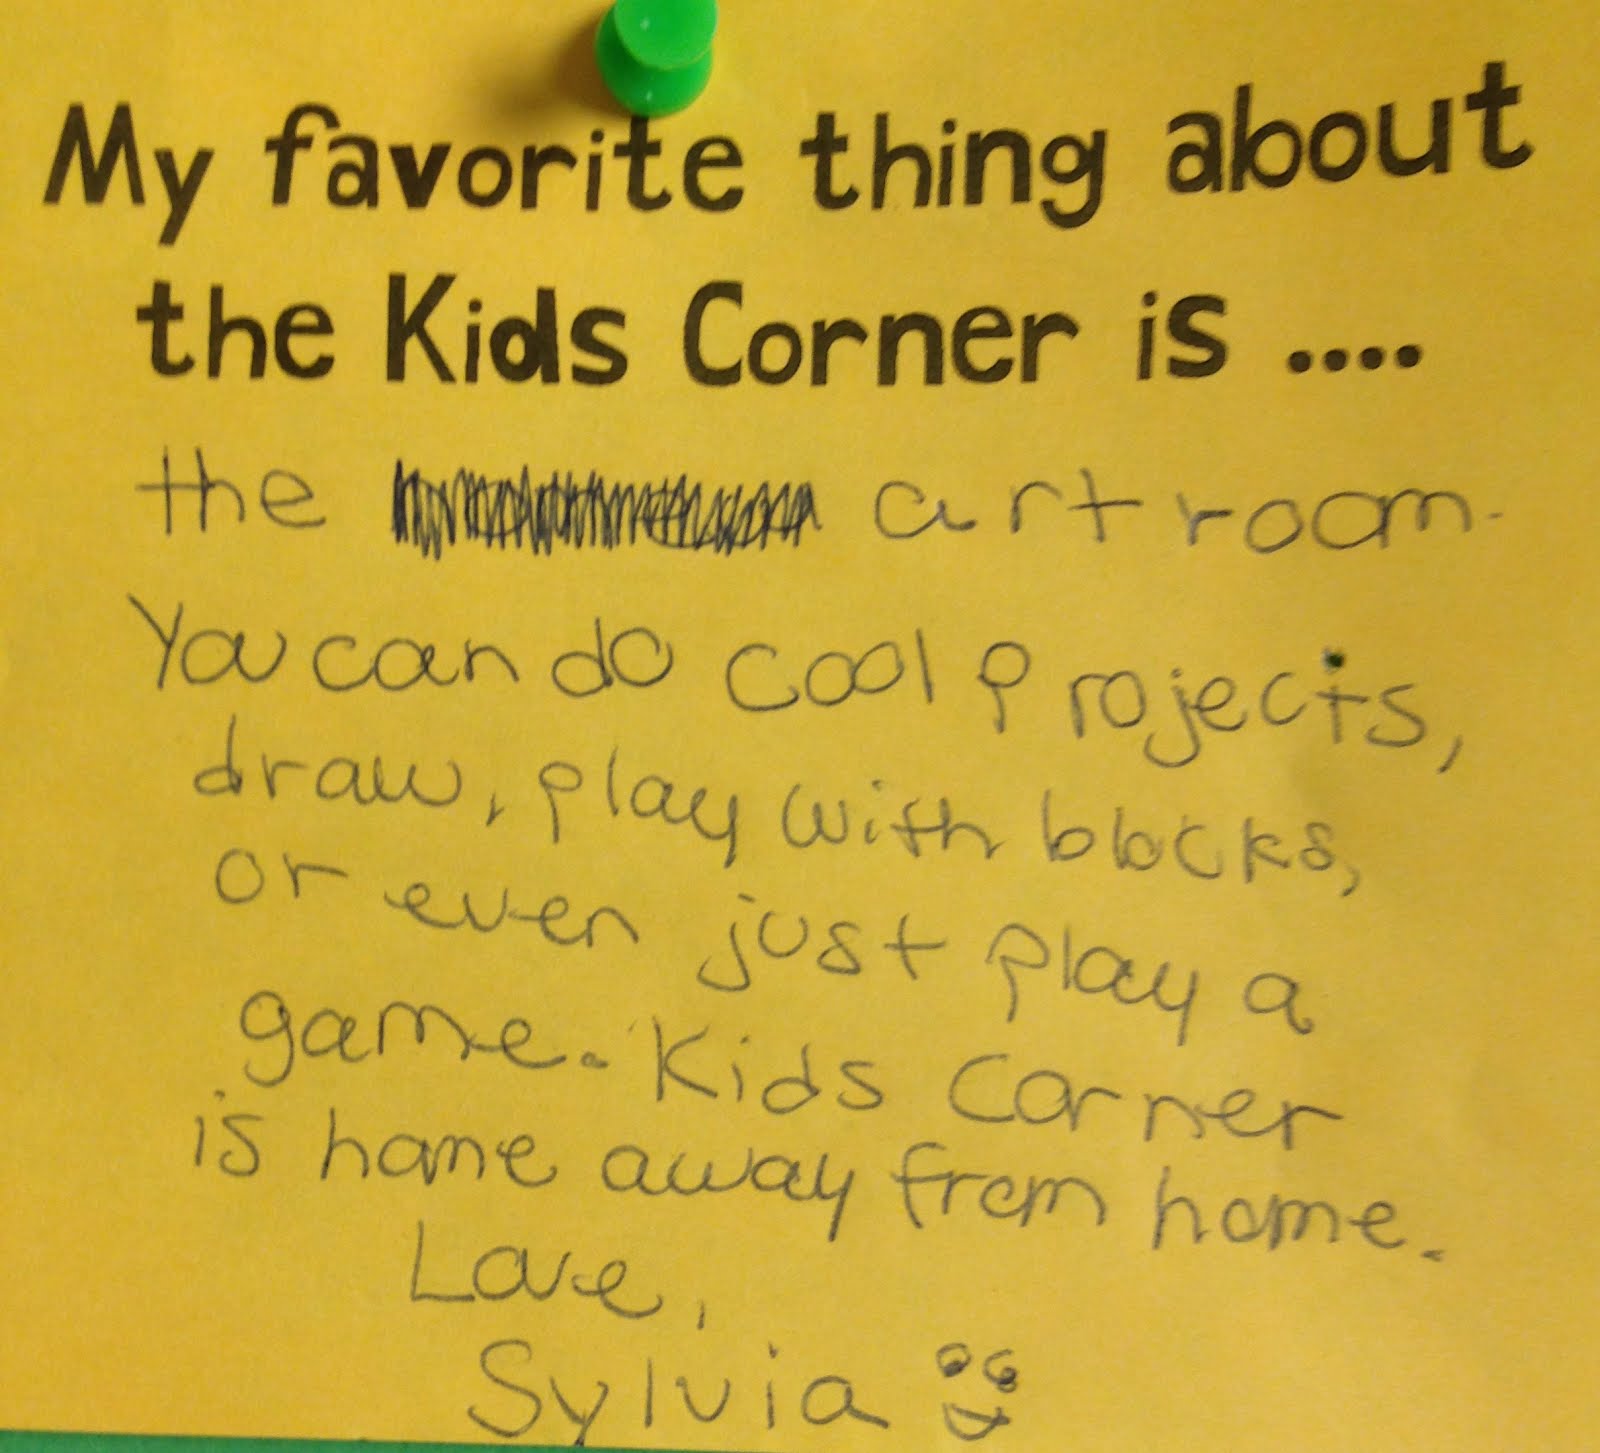 My favorite thing about
the Kids Corner is ....
the art room.
You can do cool projects,
draw, play with blocks,
or even just play a
game. Kids Corner
is home away from home.
Love,
Sylvia